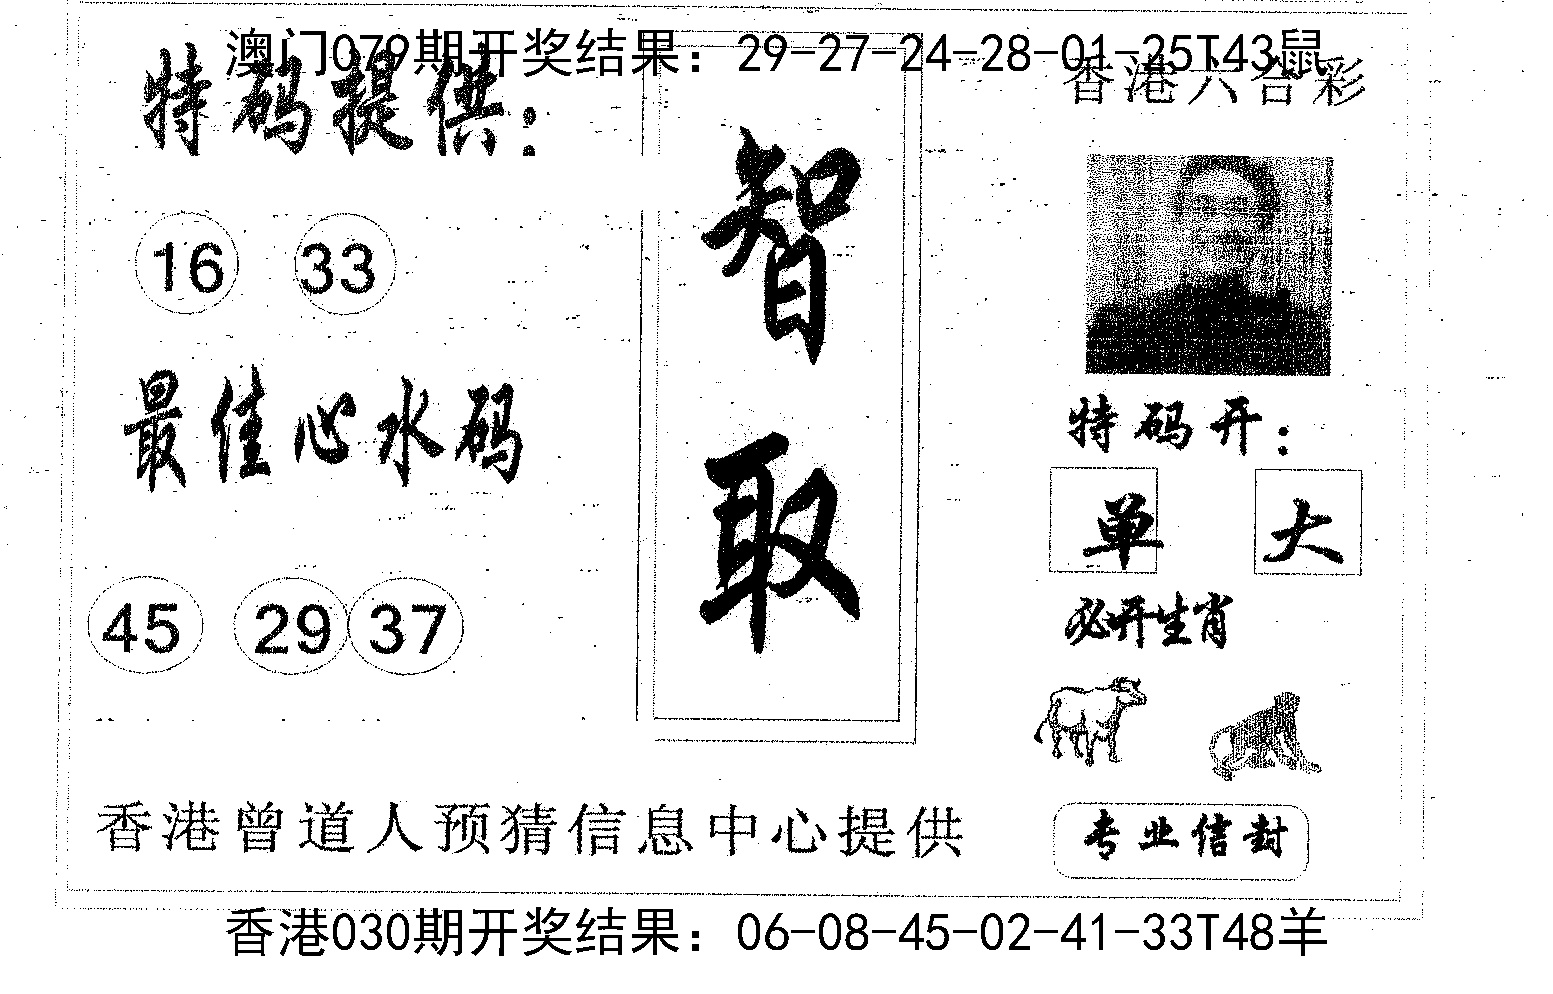 澳门079期开奖结果：29-27-24-28-01-25T43鼠
特码提供：
香港六合彩
16 33
智取
最佳心水码
特码开：
单 大
45 29 37
必开生肖
香港曾道人预猜信息中心提供
专业信封
香港030期开奖结果：06-08-45-02-41-33T48羊